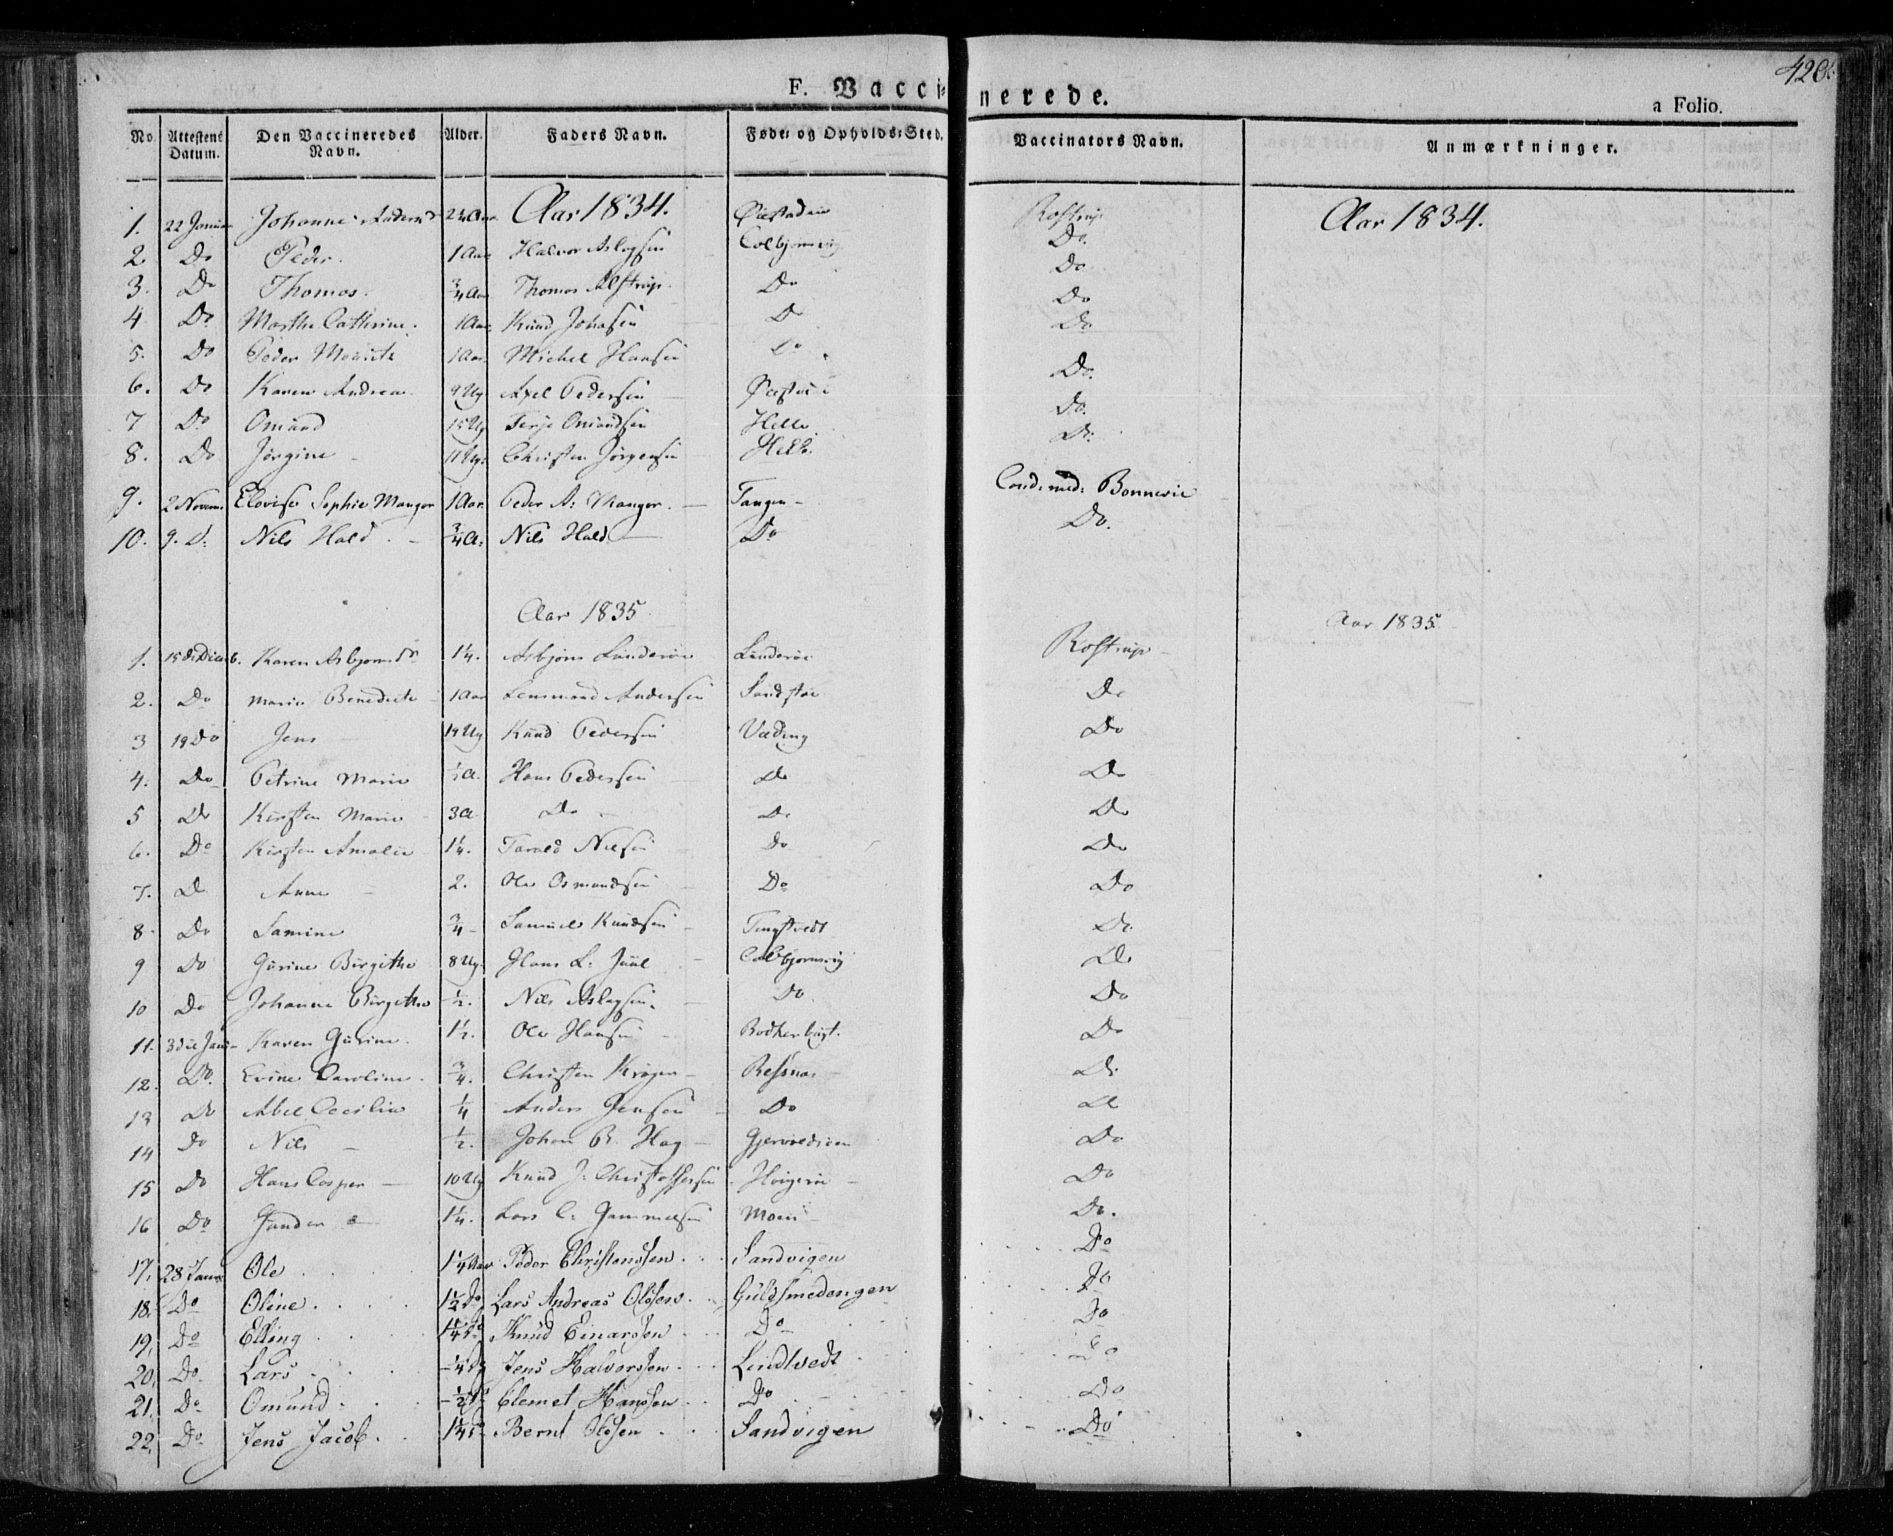 420.
F. Vaccinerede.
a Folio.
No. Attestens Datum. Den Vaccineredes Navn. Alder. Faders Navn. Føde= og Opholds=Sted. Vaccinators Navn. Anmærkninger.
Aar 1834. Aar 1834.
1. 22 Johanne Rostrup
2. Do Peder. 1 Aar Halvor Aslagsen Colbjørnsvig Do.
3. Do Thomas. 3/4 Aar Thomas Alstrup Do Do
4 Do Marthe Cathrine. 1 Aar Knud Johnsen Do Do
5. Do Peder 1 Aar Michel Hansen Do Do
6. Do Karen Andrea. 9 Ug Axel Pedersen Do.
7 Do Omund 15 Ug Terje Omundsen Helle Do.
8. Do Jørgine 11 Ug. Christen Jørgensen Helle. Do.
9. 2 Novem: Elovise Sophie Mangor 1 Aar Peder A: Mangor. Tangen Cand: med: Bonnevie
10. 9. D: Nils Hald. 3/4 A. Nils Hald Do Do.
Aar 1835 Aar 1835
1. 15 Karen Asbjørnsdr 1 1/4. Asbjørn Rostrup
2. Do Marie Benedicte 1 Aar Andersen Do
3 19 Do Jens 14 Ug Knud Pedersen Do
4. Do Petrine Marie 1/2 A. Hans Pedersen Do Do
5 Do Kirsten Marie 3 A Do Do Do
6. Do Kirsten Amalie 1 1/4. Tarald Nielsen Do Do
7. Do Anne 2. Ole Osmundsen Do Do
8. Do Samine 3/4 Samuel Knudsen Tingstvedt Do
9 Do Gurine Birgithe 8 Ug. Hans L. Juul Colbjørnsvig Do
10 Do Johanne Birgitha 1/2. Nils Aslagsen. Do Do
11. Karen Gurine. 1 1/2. Ole Hansen Do
12. Do. Evine Caroline. 3/4. Christen Do
13 Do Abel Cecilia 1/4 Anders Jensen Do Do
14 Do Nils 1/2. Johan B. Do
15 Do Hans Casper 10 Ug Knud J. Christophersen Do
16 Do 1 1/4. Lars C. Gammelsen Moen Do.
17. 28 Ole 1 1/4 Aar Peder Christenssen Sandvigen Do
18. Do Oline. 1 1/2 Do Lars Andreas Olssen Guldsmedengen Do
19. Do Elling Knud Einarssen Do Do
20. Do. Lars Jens Halvorssen. Lindtvedt Do
21. Do Omund. Clemet Hanssen Do Do
22. Do Jens Jacob. Bernt Olssen Sandvigen Do